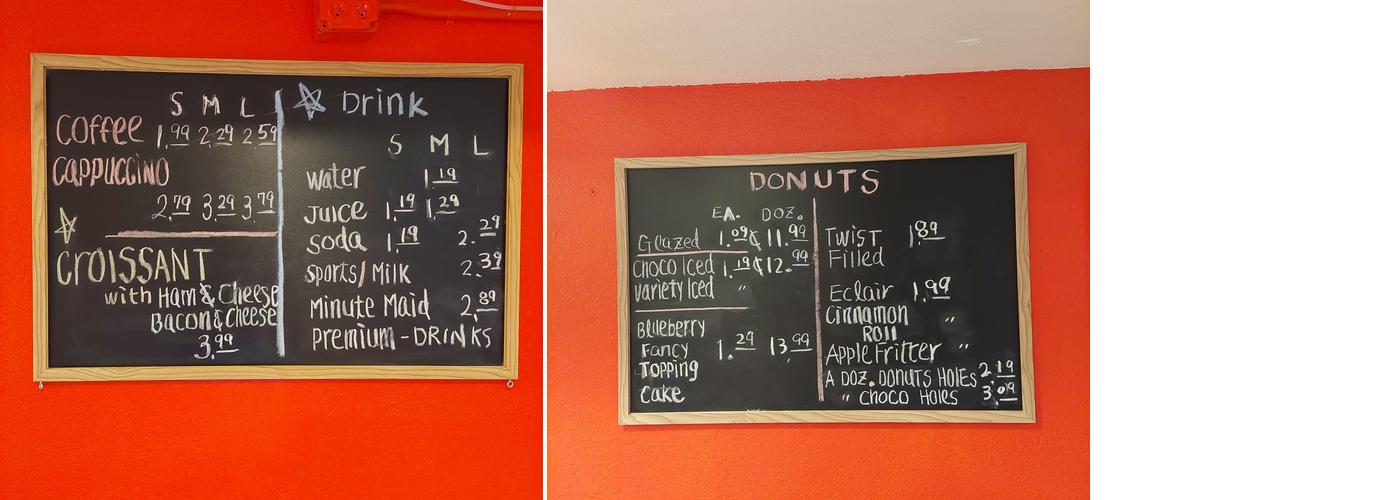 S M L
Coffee 1.99 2.29 2.59
Cappuccino
2.79 3.29 3.79
CROISSANT
with Ham & Cheese
Bacon & Cheese
3.99
Drink
S M L
water 1.19
Juice 1.19 1.29
Soda 1.19 2.29
Sports/Milk 2.39
Minute Maid 2.89
Premium-DRINKS
DONUTS
EA. DOZ.
Glazed 1.09¢ 11.99
Choco Iced 1.19¢ 12.99
Variety Iced "
Blueberry
Fancy 1.29 13.99
Topping
Cake
Twist 1.89
Filled
Eclair 1.99
Cinnamon "
Roll
Apple Fritter "
A DOZ. DONUTS HOLES 2.19
" CHOCO HOLES 3.09